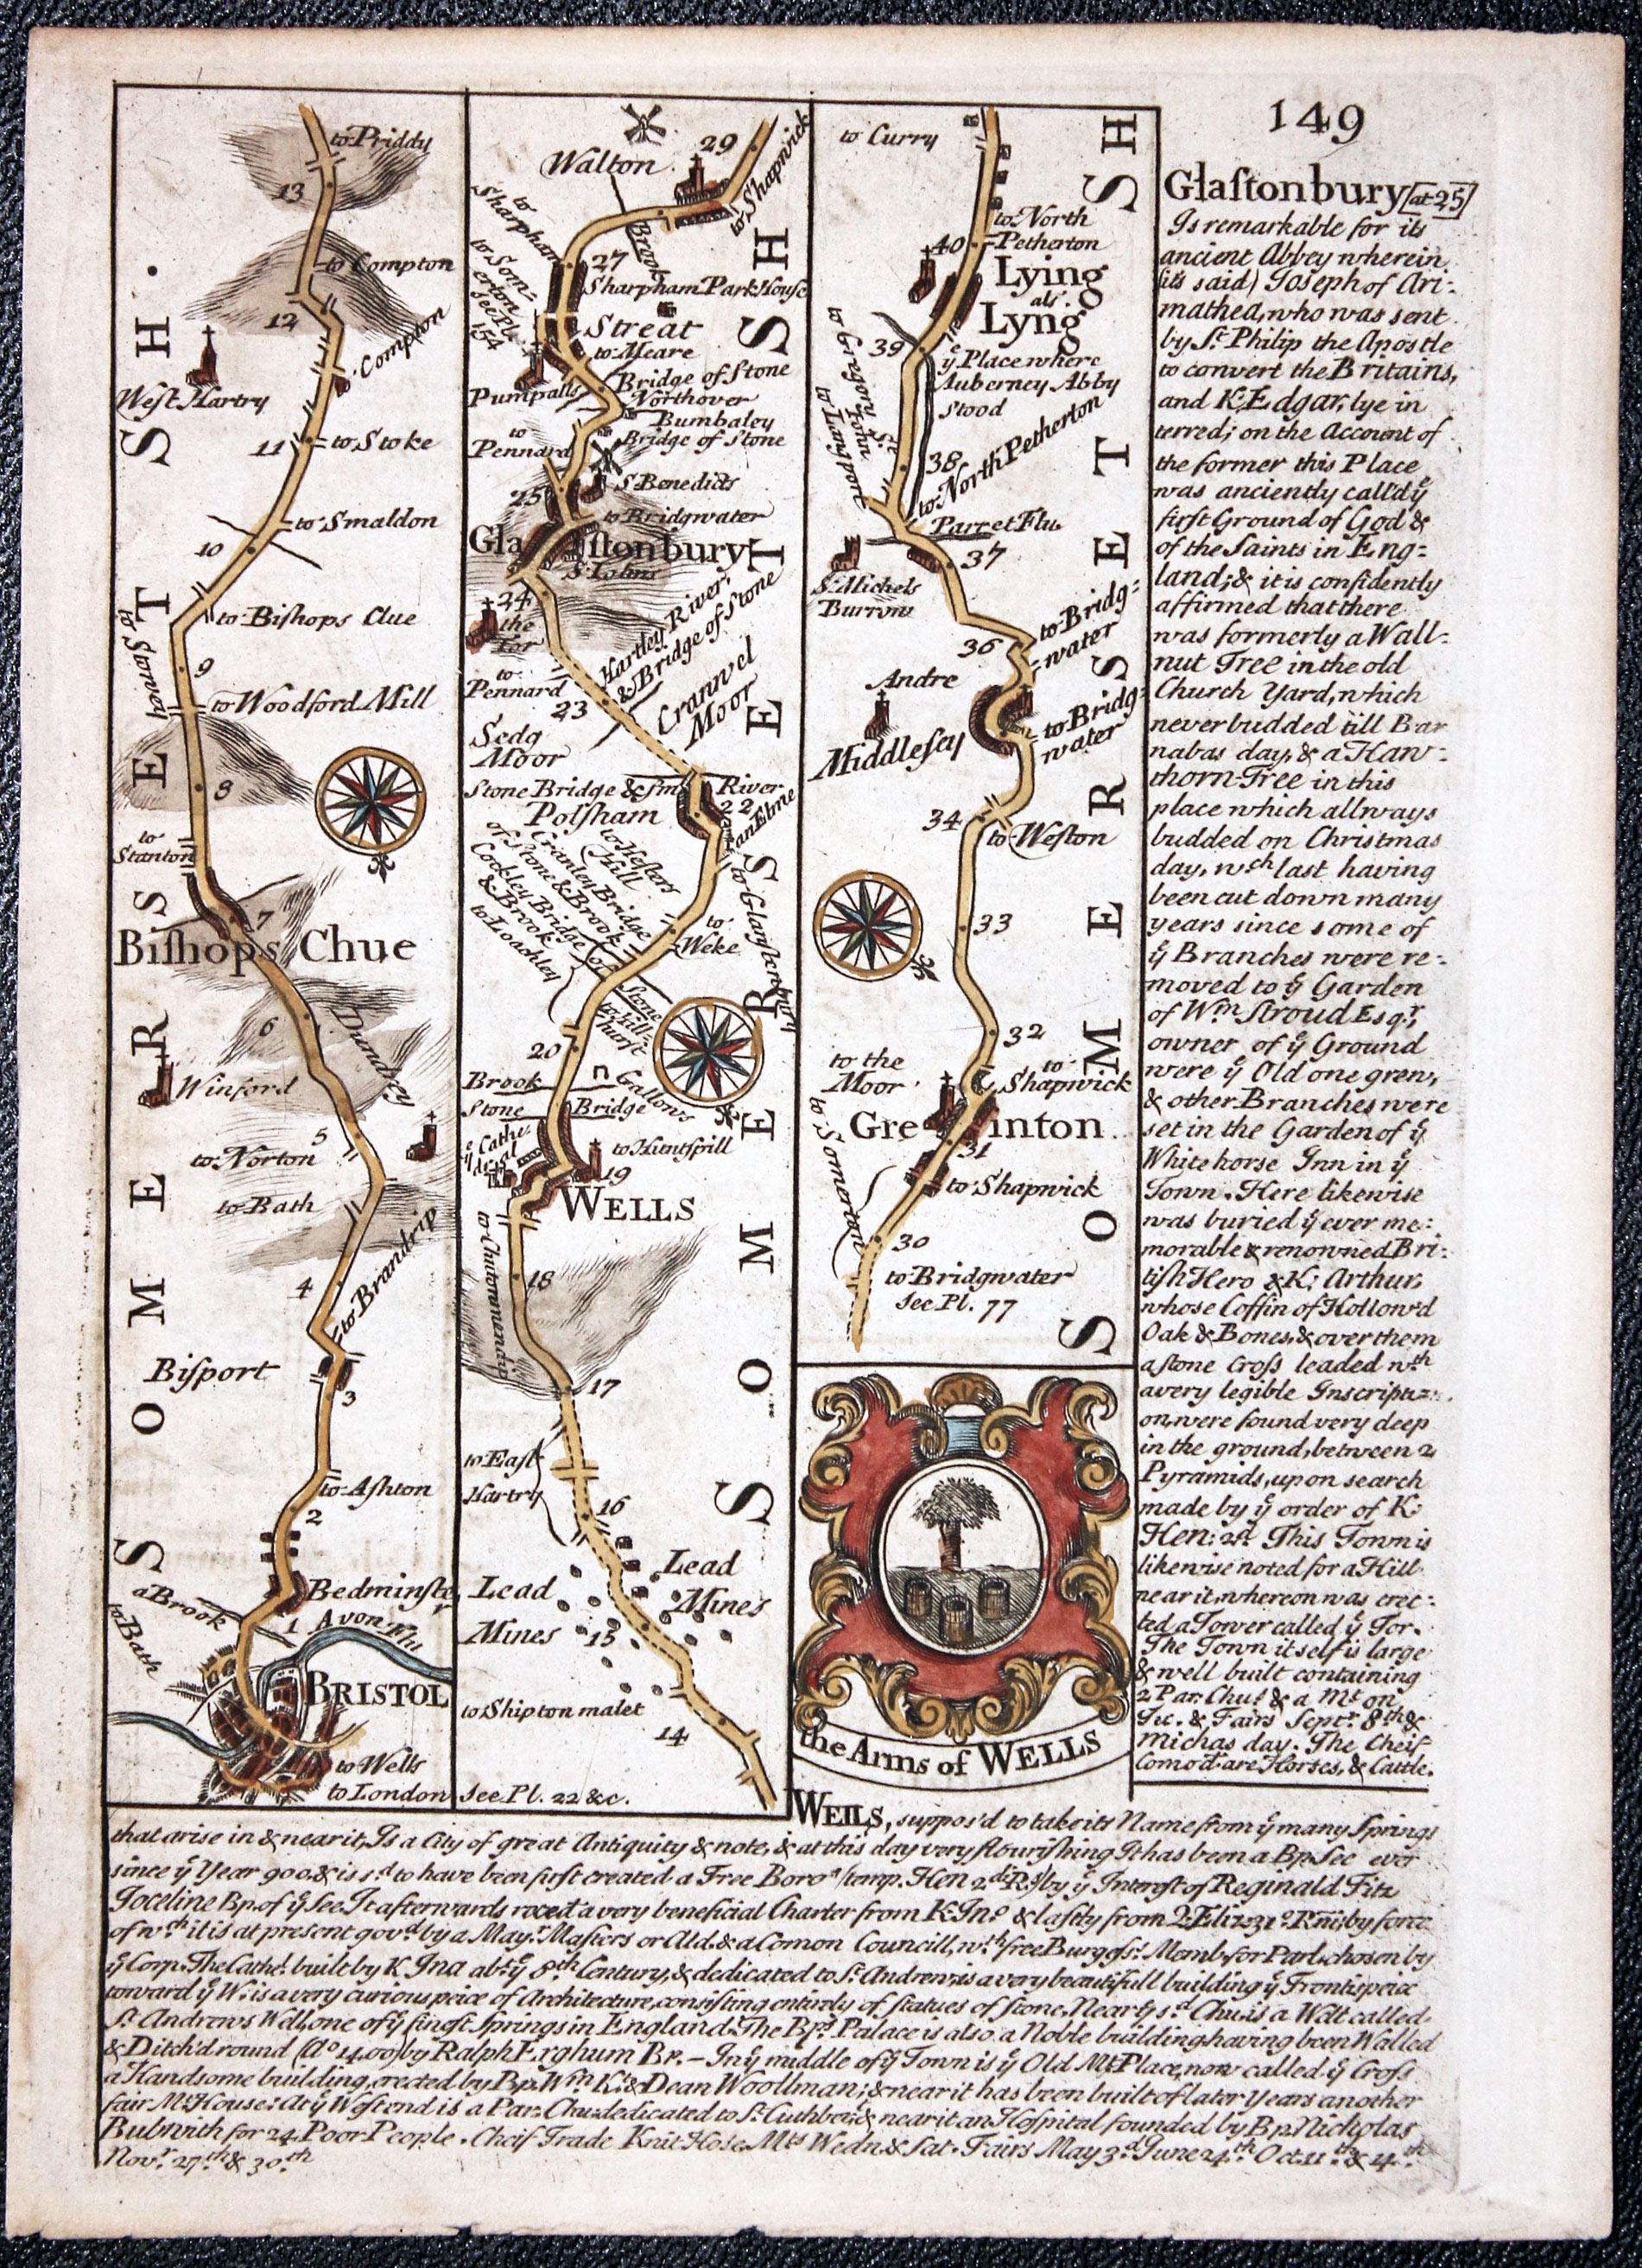 149
to Priddy
13
to Compton
12
to Compton
West Hartry
11
to Stoke
to Smaldon
10
to Bishops Clue
to Stanway
9
to Woodford Mill
8
to
Stanton
7
Biſhops Chue
6
Dundrey
Winford
5
to Norton
to Bath
4
to Brandrip
Biſport
3
to Aſhton
2
Bedminſter
a Brook
1
Avon Flu
to Bath
BRISTOL
to Wells
to London
SOMERSETSH.
Walton
29
to Shapwick
to
Sharpham
Brook
27
Sharpham Park House
to Som-
erton
see Pl.
154
Streat
to Meare
Bridge of Stone
Pumpalls
Northover
Bumbaley
Bridge of Stone
to
Pennard
25
S. Benedicts
to Bridgwater
Glaſtonbury
S. Johns
24
the
Tor
Hartley River
& Bridge of Stone
to
Pennard
23
Crannel
Moor
Sedg
Moor
Stone Bridge & ſm. River
Polſham
22
to Heſters
Hill
Cranley Bridge
of Stone & Brook
Cockley Bridge
& Brook
to Loachley
to Glanſtenbury
to
Weke
Stone
20
n Gallows
Brook
Stone
Bridge
ẙ Cathe-
dral
to Huntſpill
19
WELLS
18
17
to Eaſt
Hartry
16
Lead
Mines
Lead
Mines
15
to Shipton malet
14
See Pl. 22 &c.
SOMERSETSHSH
to Curry
to North
Petherton
40
Lying
als.
Lyng
39
ẙ Place where
Auberney Abby
Stood
to Gregory Stoke
to Langport
38
to North Petherton
Parret Flu.
37
St. Michels
Burrow
to Bridg-
water
36
Andre
Middleſey
to Bridg-
water
34
to Weſton
33
32
to the
Moor
to
Shapwick
Greinton
31
to Shapwick
to Somerton
30
to Bridgwater
See Pl. 77
SOMERSETSH
the Arms of WELLS
Glaſtonbury [at 25]
Is remarkable for its
ancient Abbey wherein
(its said) Joseph of Ari-
mathea, who was sent
by St. Philip the Apostle
to convert the Britains,
and K. Edgar, lye in
terred; on the Account of
the former this Place
was anciently call'd ẙ
first Ground of God &
of the Saints in Eng-
land; & it is confidently
affirmed that there
was formerly a Wall-
nut Tree in the old
Church Yard, which
never budded till Bar
nabas day, & a Haw-
thorn-Tree in this
place which allways
budded on Christmas
day, wch last having
been cut down many
years since some of
ẙ Branches were re-
moved to ẙ Garden
of Wm Stroud Esqr,
owner of ẙ Ground
were ẙ Old one grew,
& other Branches were
set in the Garden of ẙ
White horse Inn in ẙ
Town. Here likewise
was buried ẙ ever me-
morable & renowned Bri-
tish Hero & K: Arthur,
whose Coffin of Hollow'd
Oak & Bones, & over them
a stone Croſs leaded wth
a very legible Inscripti-
on, were found very deep
in the ground, between 2
Pyramids, upon search
made by ẙ order of K:
Hen: 2d. This Town is
likewise noted for a Hill
near it, whereon was erec-
ted a Tower called ẙ Tor.
The Town it self is large
& well built containing
2 Par. Chus. & a Mt. on
Tu. & Fairs Septr. 8th &
Michas day. The Cheif
Comodt are Horses, & Cattle.
WELLS, suppos'd to take its Name from ẙ many Springs
that arise in & near it, Is a City of great Antiquity & note, & at this day very flourishing It has been a Bp. See ever
since ẙ Year 900, & is sd to have been first created a Free Boro' (temp. Hen 2di R.) by ẙ Interest of Reginald Fitz
Joceline Bp. of ẙ See It afterwards reced a very beneficial Charter from K Jno & lastly from Q Eliz. 31o Regni, by force
of wch it is at present govd by a Mayr Masters or Ald. & a Comon Councill, wth free Burgess. Memb. for Parl. chosen by
ẙ Corp. The Cathl. built by K. Ina abt ẙ 8th Century, & dedicated to St. Andrew, is a very beautifull building ẙ Frontispeice
toward ẙ W. is a very curious peice of Architecture, consisting entirely of Statues of Stone. Near ẙ sd Chu. is a Well called
St Andrews Well, one of ẙ finest Springs in England. The Bps. Palace is also a Noble building having been Walled
& Ditch'd round (Ao 1400) by Ralph Erghum Bp. – In ẙ middle of ẙ Town is ẙ Old Mt Place, now called ẙ Croſs
a Handsome building, erected by Bp. Wm Kt & Dean Woollman; & near it has been built of later Years another
fair Mt. House: At ẙ West end is a Par. Chu. dedicated to St. Cuthbert, & near it an Hospital founded by Bp. Nicholas
Bubwith for 24 Poor People. Cheif Trade Knit Hose. Mts Wedn. & Sat. Fairs May 3d. June 24th. Oct. 11th. & 14th.
Novr. 27th & 30th.